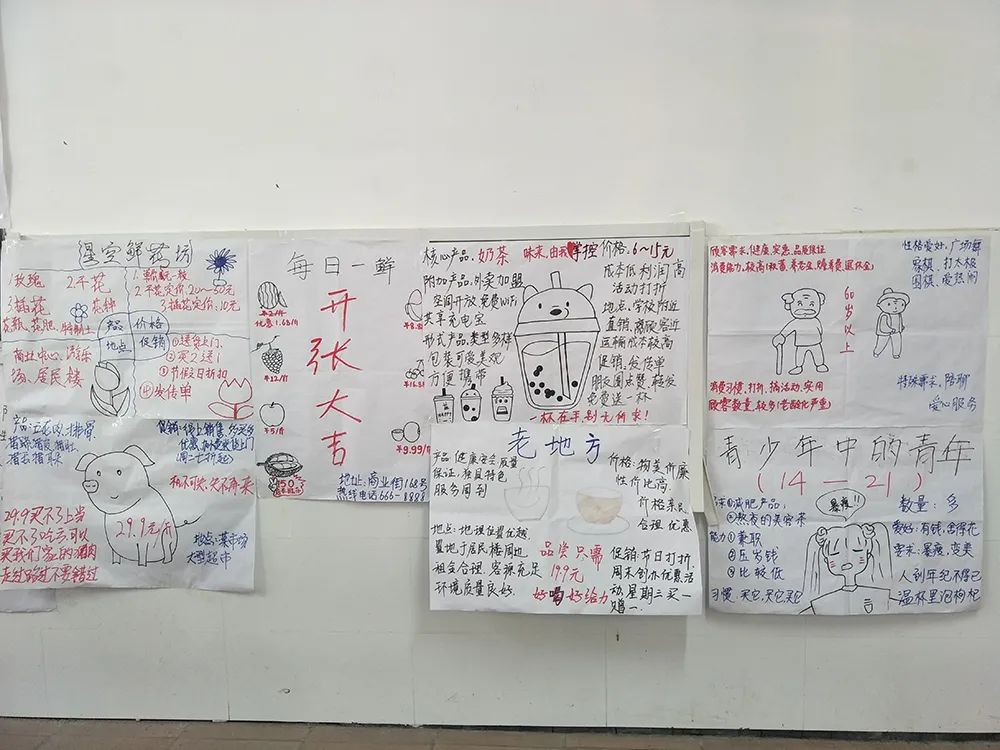 星空鲜药坊
1.玫瑰
2.干花
3.插花
花种
花瓶、花肥、特制土
产品
价格
地点
促销
2.干花定价:20~50元
3.插花定价:10元
商业中心、游乐
场、居民楼
①送货上门、
②买2送1
③节假日折扣
④发传单
每日一鲜
开
张
大
吉
优惠1.68/斤
羊12/斤
羊5/斤
羊9.99/斤
地址:商业街168号
热线电话666-8888
核心产品:奶茶
味来,由我掌控
附加产品:外卖加盟
空间开放免费WiFi
共享充电宝
形式产品:类型多样
包装可爱美观
方便携带
价格:6~15元
成本低利润高
活动打折
地点:学校附近
直销:离顾客近
运输成本较高
促销:发传单
朋友圈点赞,转发
免费送一杯
一杯在手,别无所求!
顾客需求:健康,实惠,品质保证
消费能力:较高(救济,养老金,赡养费,退休金)
60
岁
以
上
性格爱好:广场舞
象棋、打太极
围棋、爱热闹
特殊需求:陪聊
爱心服务
消费习惯:打折、搞活动、实用
顾客数量:较多(老龄化严重)
买2送1不再来
29.9买不了上当
买不了吃亏可以
买我们家的猪肉
走过路过不要错过
29.9元/斤
地点:菜市场
大型超市
老地方
产品:健康安全质量
保证,独具特色
服务周到
地点:地理位置优越,
置地于居民楼周边,
租金合理,客源充足
环境质量良好.
价格:物美价廉
性价比高.
价格亲民
合理优惠
品尝只需
199元
好喝好给力
促销:节日打折
周末创办优惠活
动,星期三买一
赠一
青少年中的青年
(14-21)
①减肥产品:
②熬夜的美容茶
能力①兼职
②压岁钱
③比较低
习惯:买它,买它买它
暴瘦!!
数量:多
爱好:有钱,舍得花
需求:暴瘦、变美
人到年纪不得已
温杯里泡枸杞